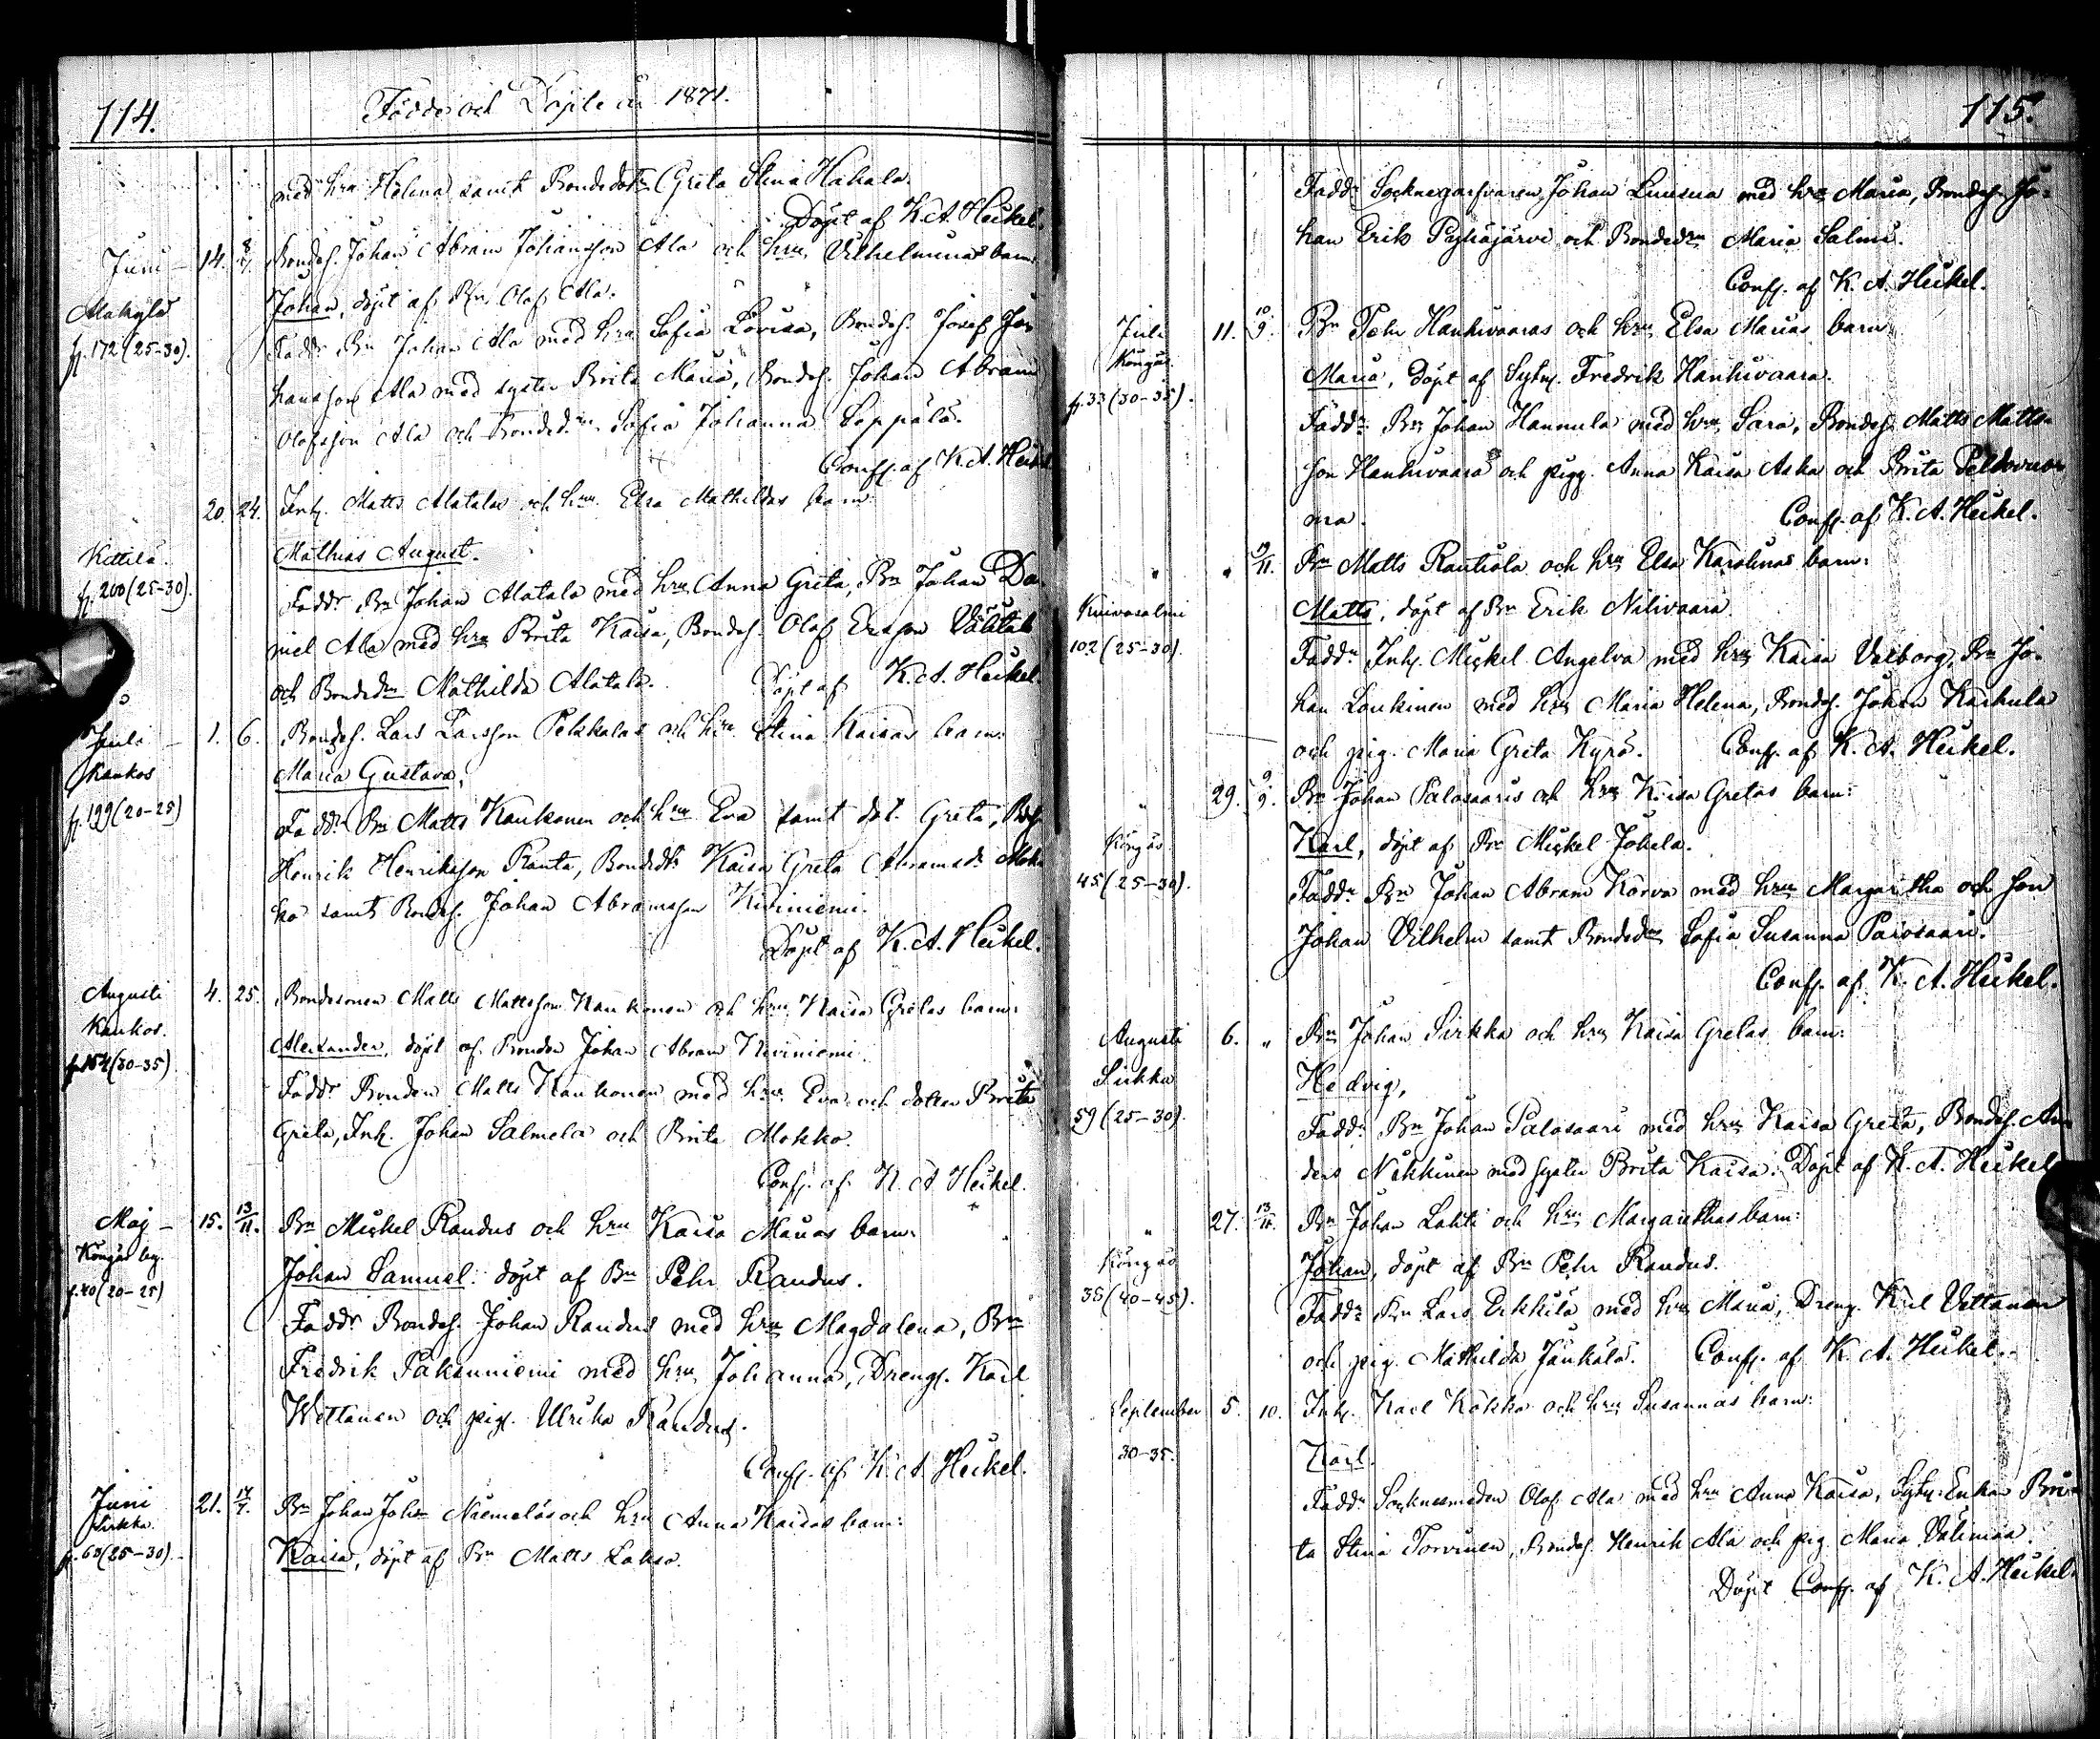 114.
Födde och Döpte år 1871.
med hru Helena samt Bondedotr Greta Stina Hakala.
Döpt af K. A. Heikel.
Juni – 14. 8/7. Bondes. Johan Abram Johansson Ala och hru Vilhelminas barn:
Alakylä Johan, döpt af Bn Olof Ala.
p. 172 (25–30). Faddr Bn Johan Ala med hru Sofia Lovisa, Bondes. Josef Jo-
hansson Ala med syster Brita Maria, Bondes. Johan Abram
Olofsson Ala och Bondedn Sofia Johanna Seppälä.
Conf. af K. A. Heikel
20. 24. Inh. Matts Alatalos och hru Elsa Mathildas barn:
Kittilä. Mathias August.
p. 200 (25–30). Faddr Bn Johan Alatalo med hru Anna Greta, Bn Johan Da-
niel Ala med hru Brita Kaisa, Bondes. Olof Ersson Välitalo
och Bondedn Mathilda Alatalo. Döpt af K. A. Heikel.
Juli – 1. 6. Bondes. Lars Larsson Pekkalas och hru Stina Kaisas barn:
Kaukos Maria Gustava,
p. 199 (20–25) Faddr Bn Matts Kaukonen och hru Eva samt dot. Greta, Bds.
Henrik Henriksson Ranta, Bondedtr Kaisa Greta Abramsdr Mok-
ko samt Bondes. Johan Abramsson Kiviniemi.
Döpt af K. A. Heikel.
Augusti 4. 25. Bondesonen Matts Mattsson Kaukonen och hru Kaisa Gretas barn:
Kaukos. Alexander, döpt af Bonden Johan Abram Kiviniemi.
p. 154 (30–35) Faddr Bonden Matts Kaukonen med hru Eva och dotter Brita
Greta, Inh. Johan Salmela och Brita Mokko.
Conf. af K. A. Heikel.
Maj – 15. 13/11. Bn Mickel Randus och hru Kaisa Marias barn:
Köngäs by. Johan Samuel: döpt af Bn Pehr Randus.
p. 40 (20–25) Faddr Bondes. Johan Randus med hru Magdalena, Bn
Fredrik Pakinniemi med hru Johanna, Drengs. Karl
Wettanen och pig. Ulrika Randus.
Conf. af K. A. Heikel.
Juni 21. 14/7. Bn Johan Johan Niemelas och hru Anna Kaisas barn:
Sirkka. Kaisa, döpt af Bn Matts Lakso.
p. 63 (25–30).
115.
Faddr Socknegarfvaren Johan Luusua med hru Maria, Bondes. Jo-
han Erik Pyhäjärvi och Bondedn Maria Salmi.
Conf. af K. A. Heikel.
Juli 11. 10/9. Bn Pehr Hanhivaaras och hru Elsa Marias barn
Köngäs. Maria, döpt af Sytn. Fredrik Hanhivaara.
p. 33 (30–35). Faddr Bn Johan Hannula med hru Sara, Bondes. Matts Matts-
son Hanhivaara och pigg. Anna Kaisa Aska och Brita Peldovuo-
ma. Conf. af K. A. Heikel.
" " 19/11. Bn Matts Rautiola och hru Elsa Karolinas barn:
Kuivasalmi Matts, döpt af Bn Erik Nilivaara
102 (25–30). Faddr Inh. Mickel Angelva med hru Kaisa Valborg, Bn Jo-
han Loukinen med hru Maria Helena, Bondes. Johan Karhula
och pig. Maria Greta Kyrö. Conf. af K. A. Heikel.
" 29. 9/9. Bn Johan Palosaaris och hru Kaisa Gretas barn:
Köngäs. Karl, döpt af Bn Mickel Jokela.
45 (25–30). Faddr Bn Johan Abram Korva med hru Margaretha och son
Johan Vilhelm samt Bondedn Sofia Susanna Palosaari.
Conf. af K. A. Heikel.
Augusti 6. " Bn Johan Sirkka och hru Kaisa Gretas barn:
Sirkka Hedvig,
59 (25–30). Faddr Bn Johan Palosaari med hru Kaisa Greta, Bondes. An-
ders Nikkinen med syster Brita Kaisa. Döpt af K. A. Heikel
" 27. 13/11. Bn Johan Lahti och hru Margarethas barn:
Köngäs Johan, döpt af Bn Pehr Randus.
38 (40–45). Faddr Bn Lars Erkkilä med hru Maria, Dreng. Karl Vettanen
och pig. Mathilda Jänkälä. Conf. af K. A. Heikel.
September 5. 10. Inh. Karl Kokko och hru Susannas barn:
30–35. Karl.
Faddr Socknesmeden Olof Ala med hru Anna Kaisa, Sytn. Enkan Bri-
ta Stina Torvinen, Bondes. Henrik Ala och pig. Maria Välimaa.
Döpt Conf. af K. A. Heikel.